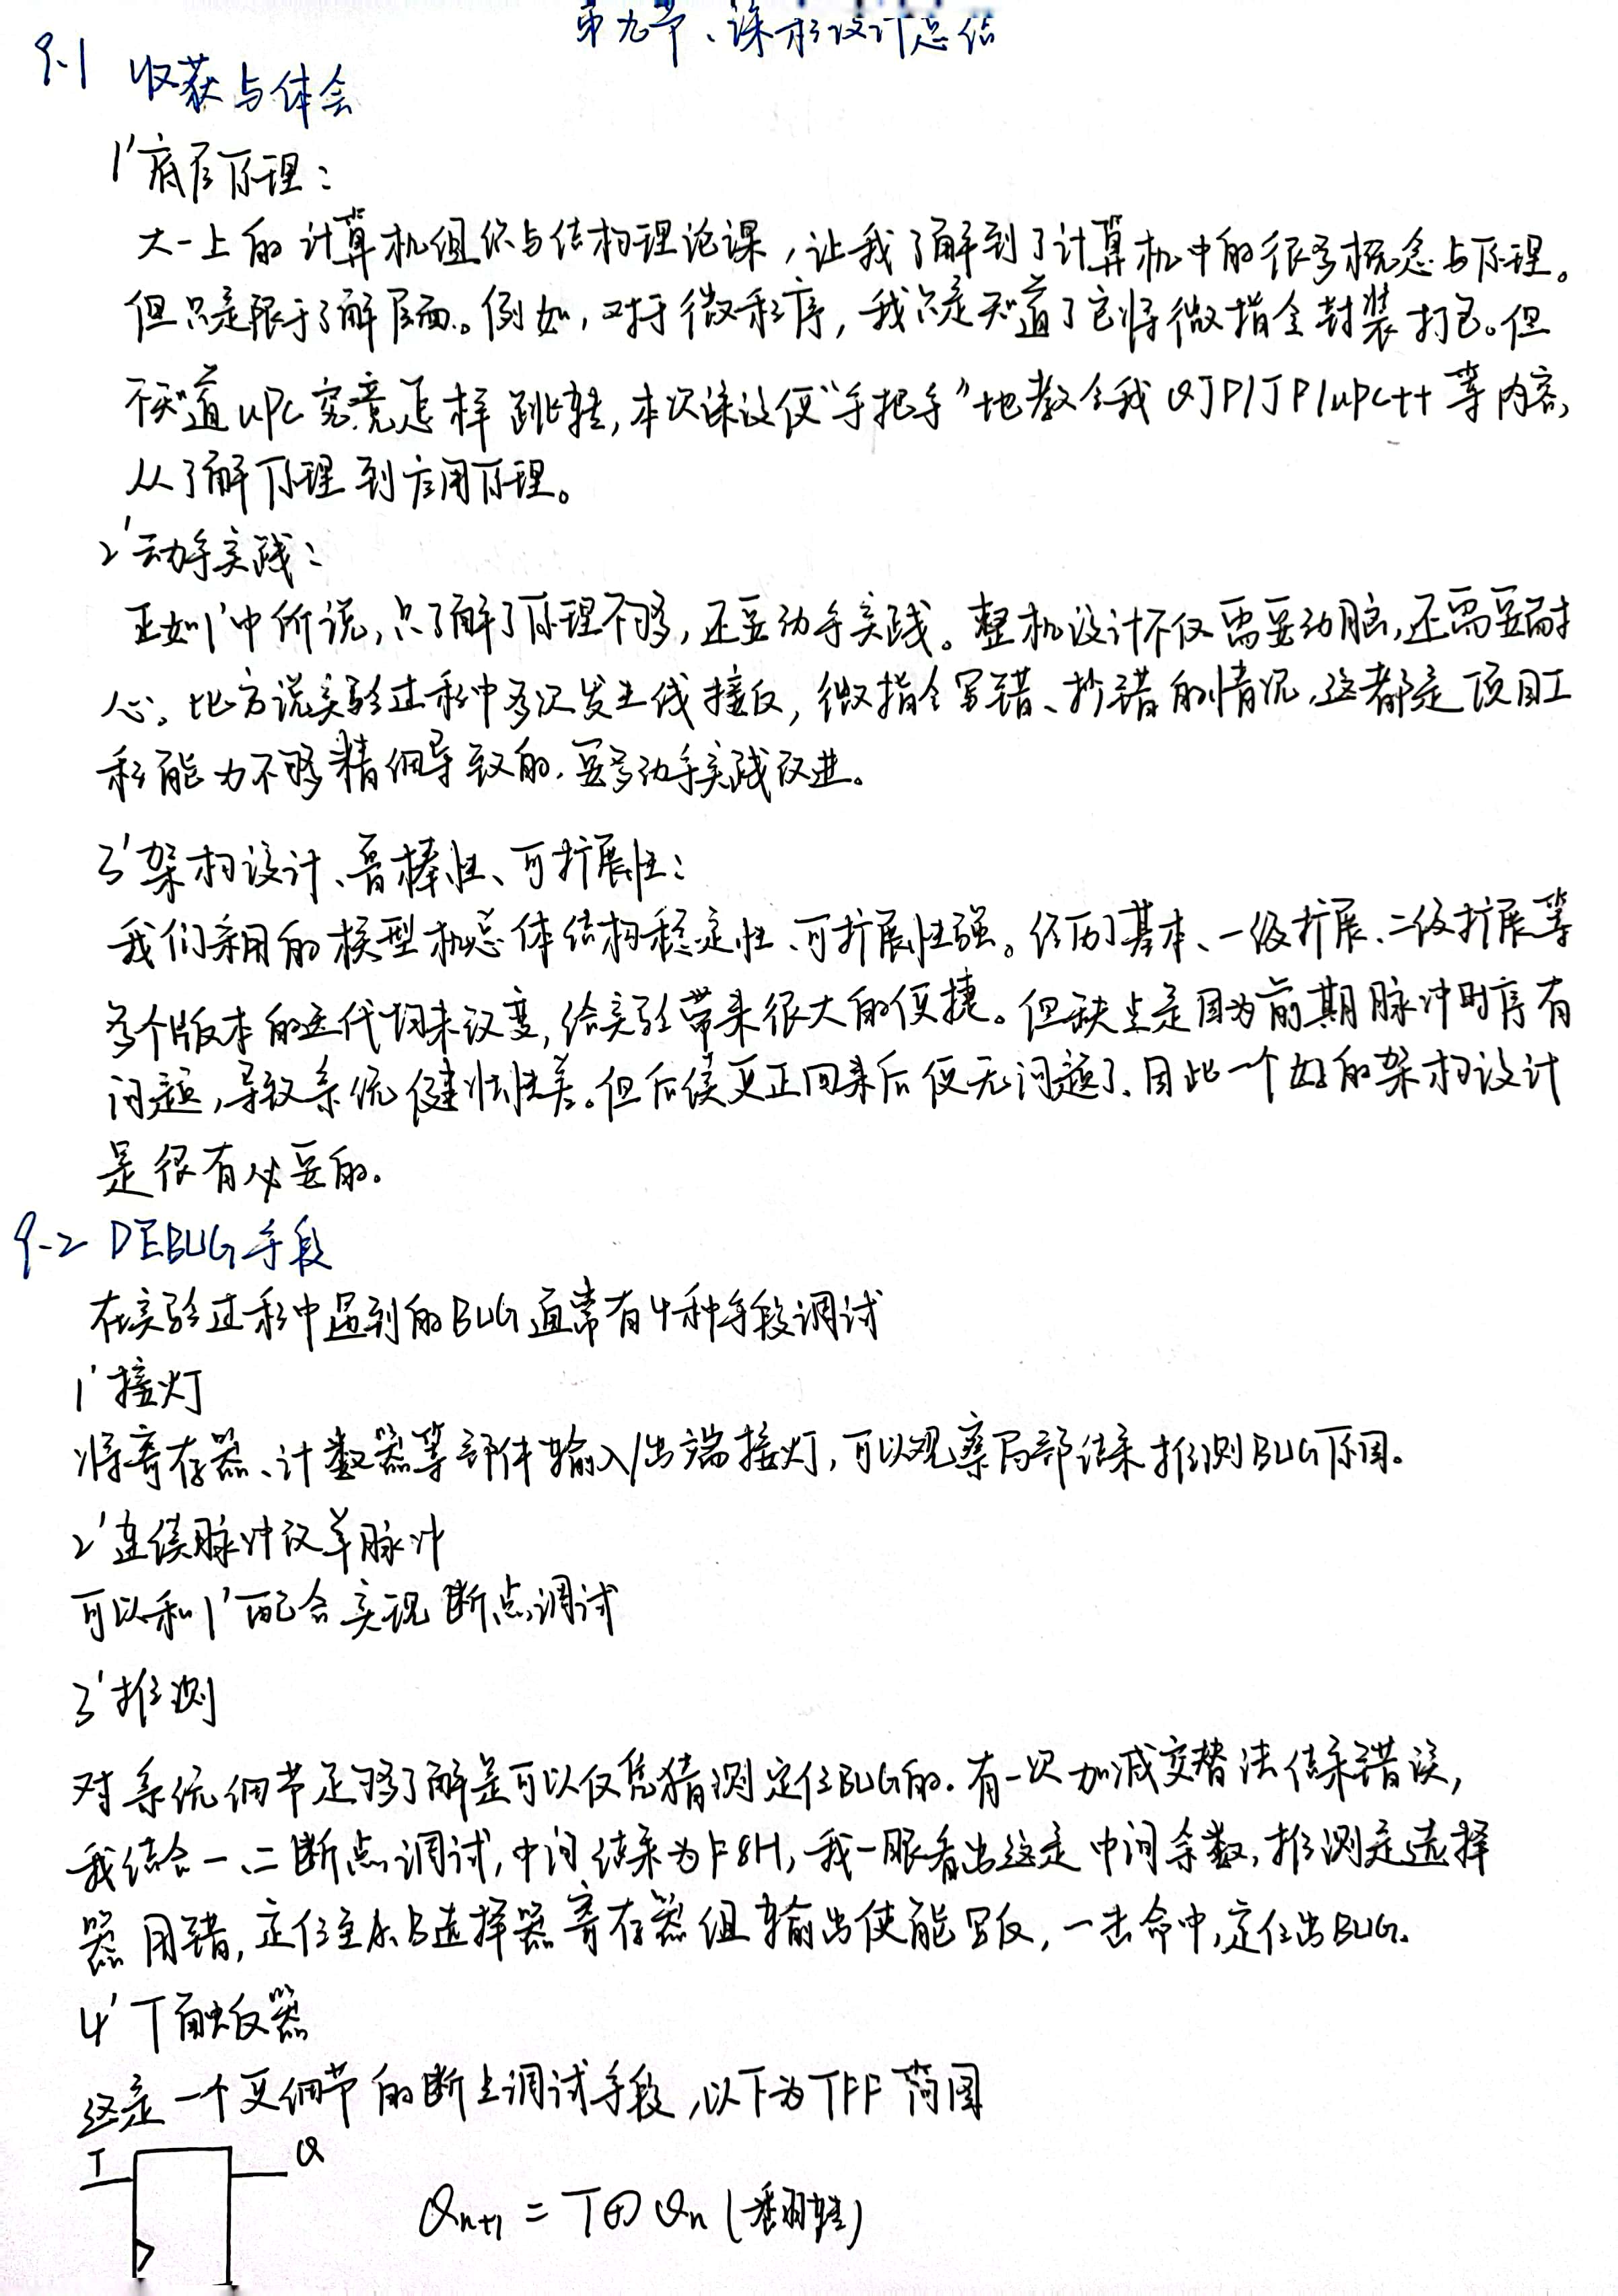 第九节、课程设计总结
9.1 收获与体会
1' 底层原理:
大一上的计算机组织与结构理论课,让我了解到了计算机中的很多概念与原理。
但只是限于了解层面。例如,对于微程序,我只是知道了它将微指令封装打包。但
不知道uPC究竟怎样跳转,本次课设便“手把手”地教会我QJP/JP/uPC++等内容,
从了解原理到应用原理。
2' 动手实践:
正如1'中所说,只了解了原理不够,还要动手实践。整机设计不仅需要动脑,还需要耐
心。比方说实验过程中多次发生线接反,微指令写错、抄错的情况,这都是项目工
程能力不够精细导致的,要多动手实践改进。
3' 架构设计、鲁棒性、可扩展性:
我们采用的模型机总体结构稳定性、可扩展性强。经历了基本、一级扩展、二级扩展等
多个版本的迭代均未改变,给实验带来很大的便捷。但缺点是因为前期脉冲时序有
问题,导致系统健壮性差。但后续更正回来后便无问题了、因此一个好的架构设计
是很有必要的。
9.2 DEBUG手段
在实验过程中遇到的BUG通常有4种手段调试
1' 接灯
将寄存器、计数器等部件输入/出端接灯,可以观察局部结果推测BUG原因。
2' 连续脉冲改单脉冲
可以和1'配合实现断点调试
3' 推测
对系统细节足够了解是可以仅凭猜测定位BUG的。有一次加减交替法结果错误,
我结合一、二断点调试,中间结果为F8H,我一眼看出这是中间余数,推测是选择
器用错,定位至A.B选择器寄存器组输出使能写反,一击命中,定位出BUG。
4' T触发器
这是一个更细节的断点调试手段,以下为TFF简图
T Q
Qn+1 = T⊕Qn (翻转)